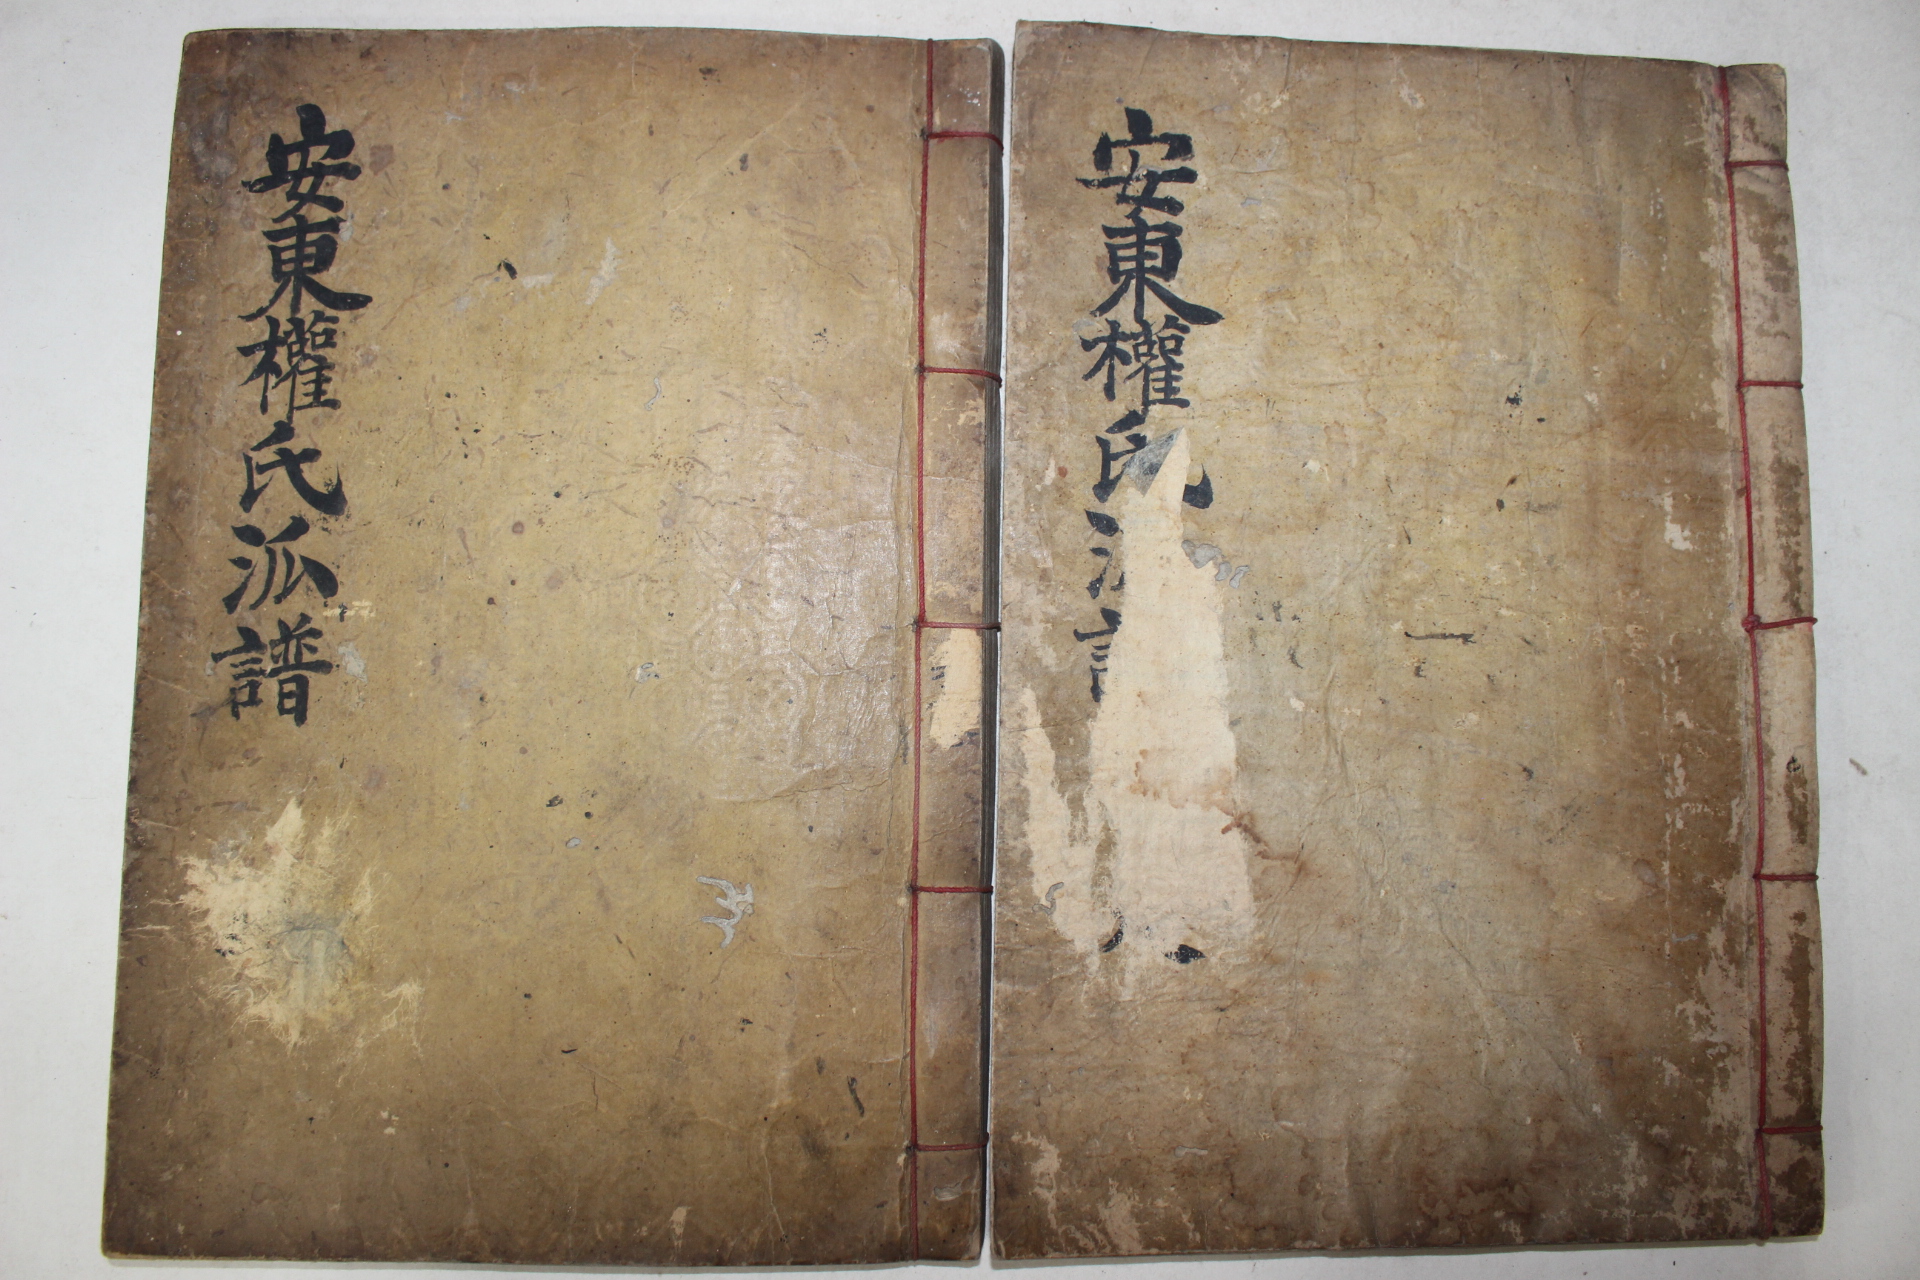 安東權氏派譜
安東權氏派